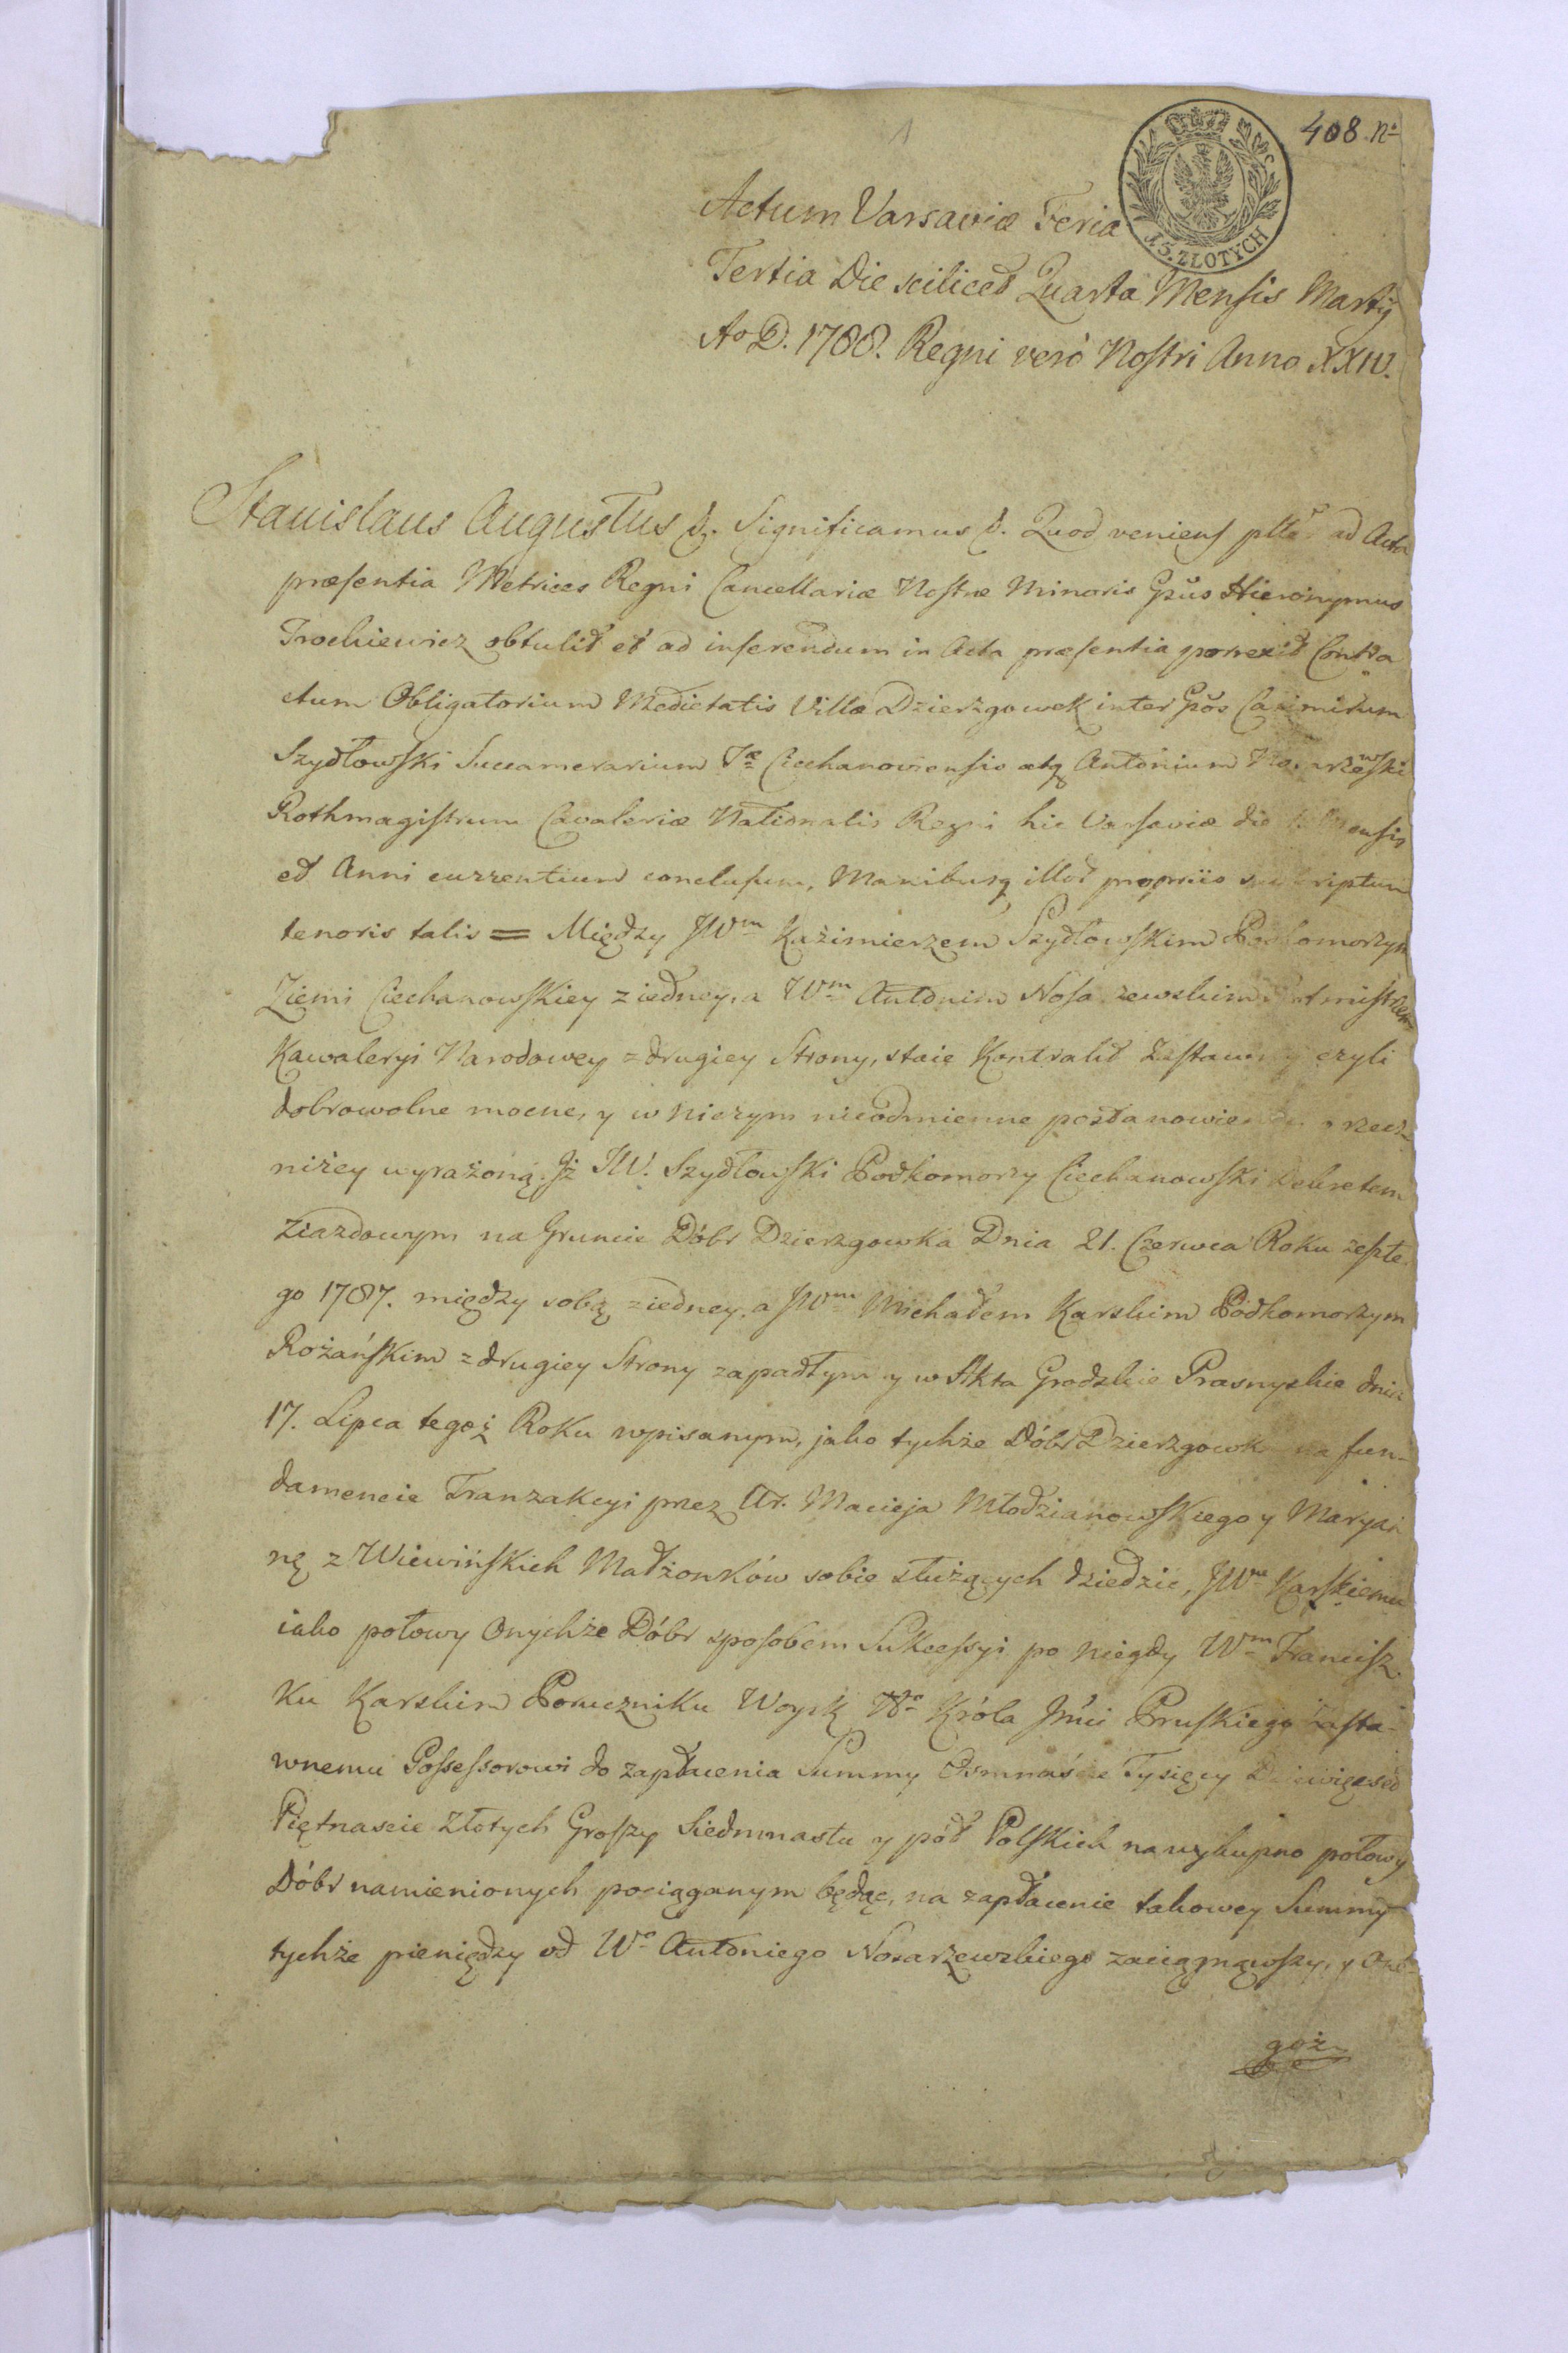 1
408. No
J. 5. ZŁOTYCH
Actum Varsaviæ Feria
Tertia Die scilicet Quarta Mensis Martij
Ao D. 1788. Regni verò Nostri Anno XXIV.
Stanislaus Augustus &. Significamus &. Quod veniens pltẽr ad Acta
præsentia Metrices Regni Cancellariæ Nostræ Minoris Gsũs Hieronymus
Trochiewicz obtulit et ad inserendum in Acta præsentia porrexit Contra
ctum Obligatorium Medietatis Villæ Dzierzgowek inter Gsõs Casimirum
Szydłowski Succamerarium Tæ Ciechanoviensis atq Antonium
Rothmagistrum Cavaleriæ Nationalis Regni hic Varsaviæ die
et Anni currentium conclusum, Manibusq illor propriis subscriptum
tenoris talis = Między JWm Kazimierzem Szydłowskim Podkomorzym
Ziemi Ciechanowskiey z iedney, a Wm Antonim Nosarzewskim Rotmistrzem
Kawaleryi Narodowey z drugiey Strony, staie Kontrakt Zastawny czyli
dobrowolne mocne, y w niczym nieodmienne postanowienie o rzecz
niżey wyrażoną. Iż JW. Szydłowski Podkomorzy Ciechanowski Dekretem
Ziazdowym na Gruncie Dóbr Dzierzgowka Dnia 21. Czerwca Roku zeszłe
go 1787. między sobą z iedney, a JWm Michałem Karskim Podkomorzym
Rożańskim z drugiey Strony zapadłym y w Akta Grodzkie Prasnyskie dnia
17. Lipca tegoż Roku wpisanym, jako tychże Dóbr Dzierzgowka na fun-
damencie Tranzakcyi przez Ur. Macieja Młodzianowskiego y Maryan
nę z Wiewińskich Małżonków sobie służących dziedzic, JWu Karskiemu
iako połowy Onychże Dóbr sposobem Sukcessyi po niegdy Wm Francisz-
ku Karskim Poruczniku Woysk Wo Króla Jmci Pruskiego Zasta-
wnemu Possessorowi do zapłacenia Summy Osmnaście Tysięcy Dziewięćset
Piętnascie Złotych Groszy Siedmnastu y pół Polskich na wykupno połowy
Dóbr namienionych pociąganym będąc, na zapłacenie takowey Summy
tychże pieniędzy od Wo Antoniego Nosarzewskiego zaciągnąwszy, y One-
goż